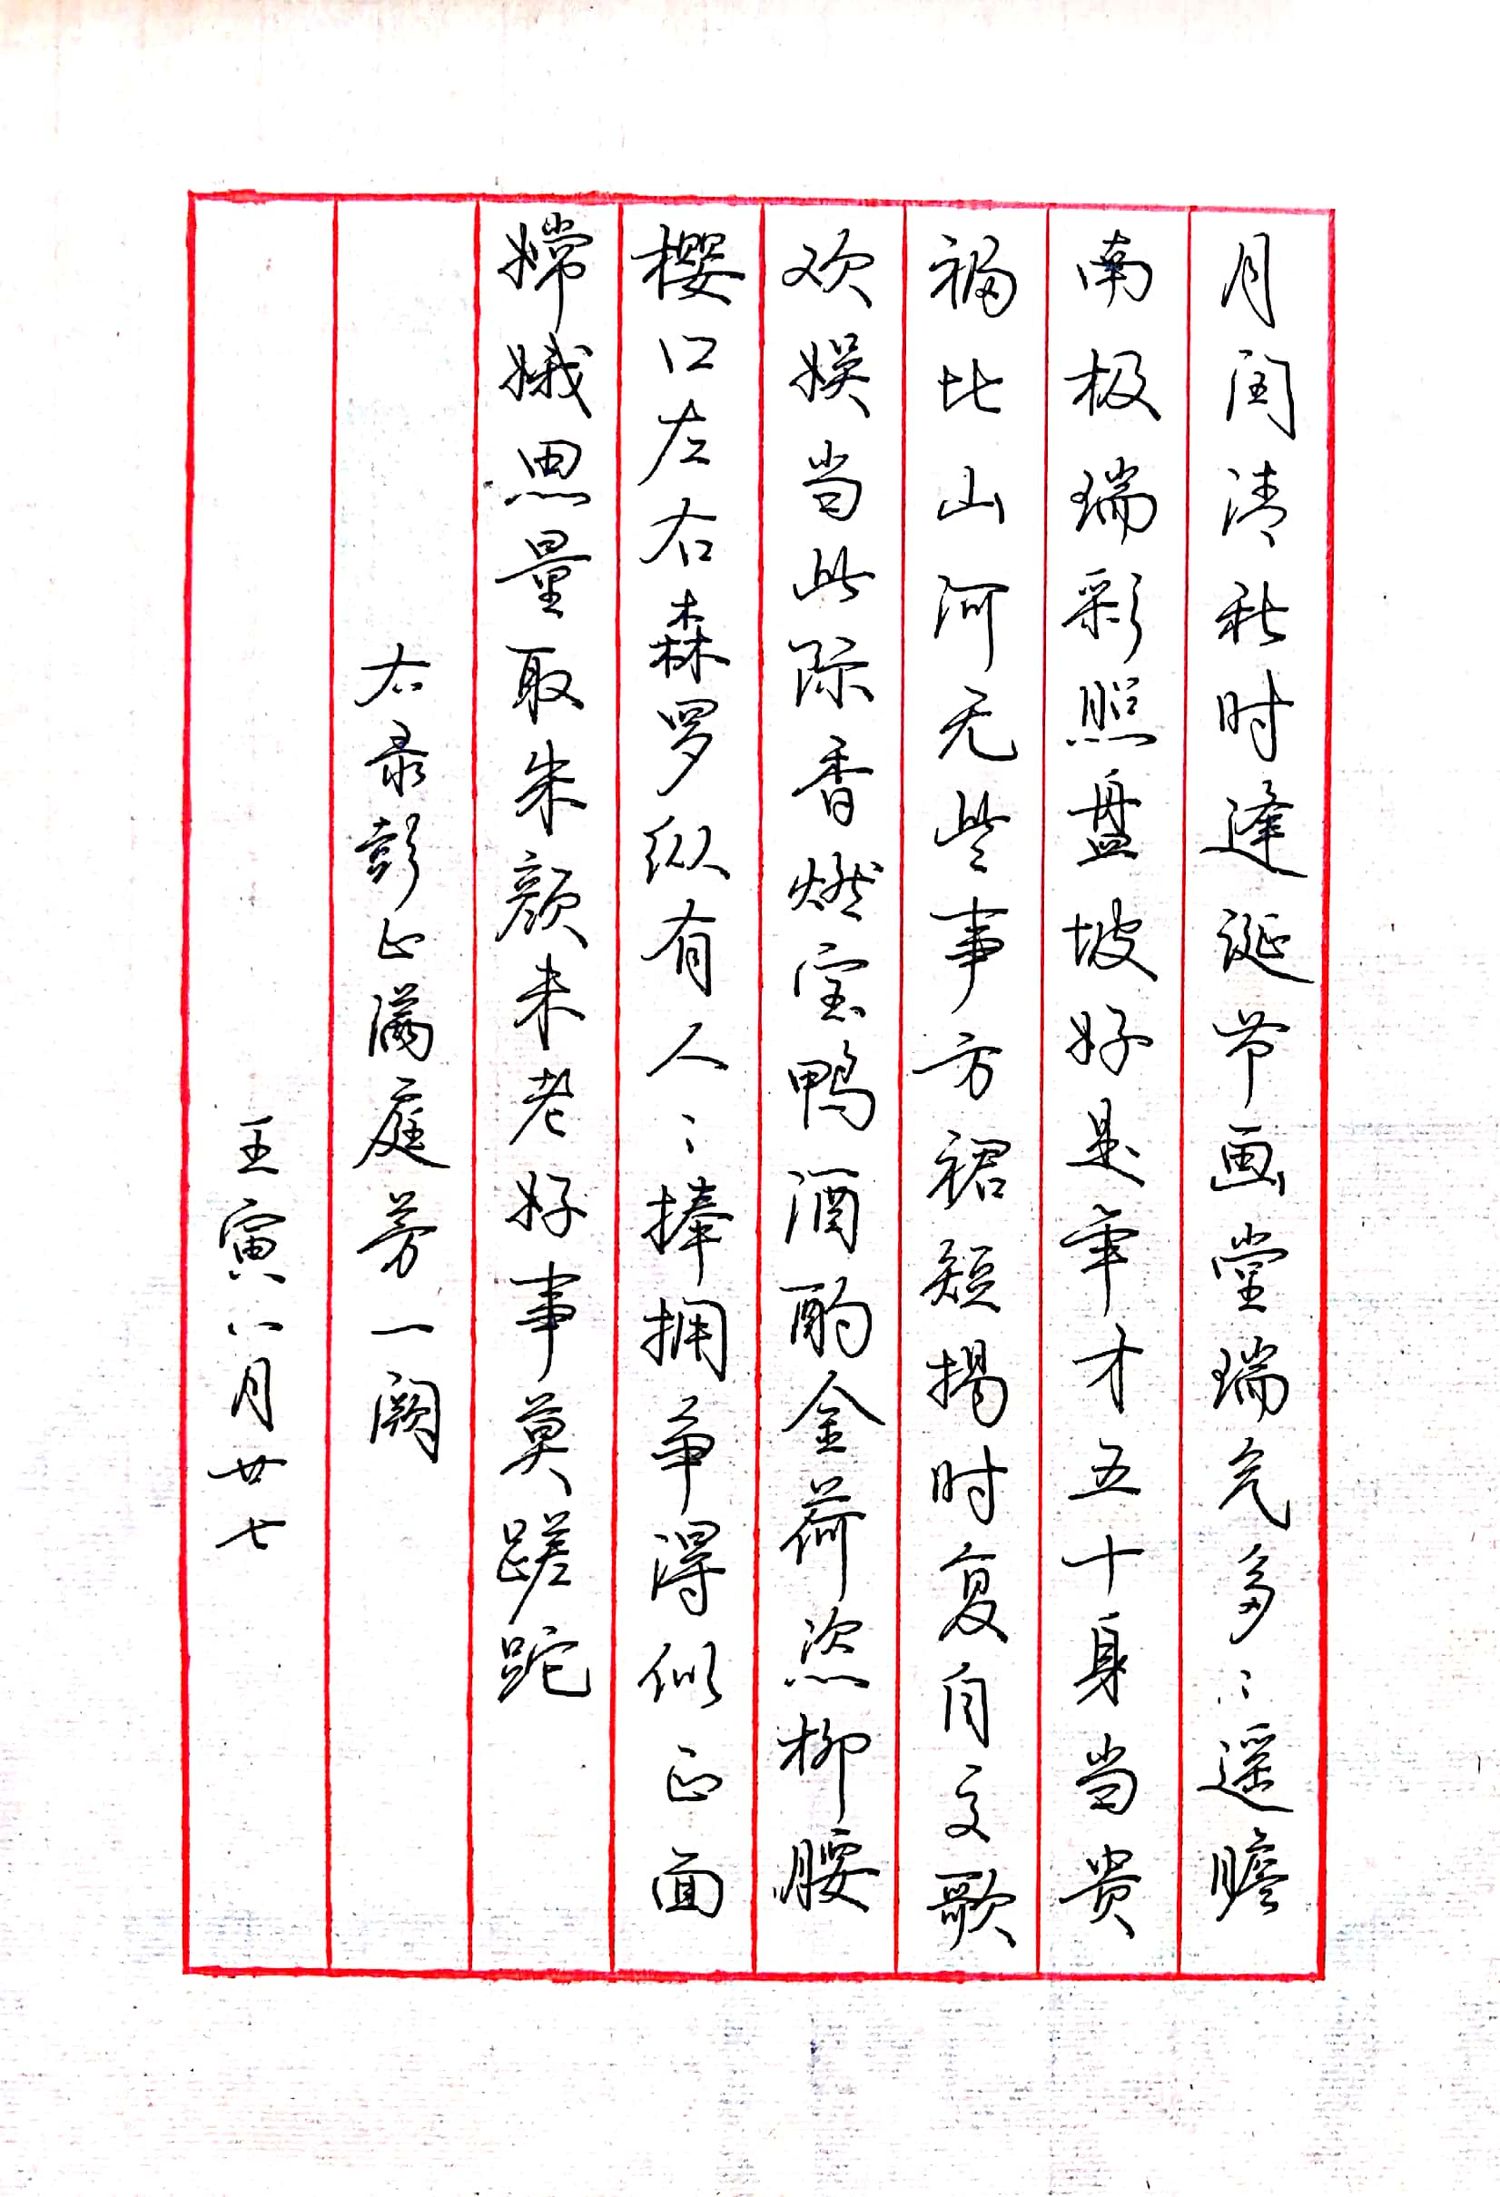 月闰清秋时逢诞节画堂瑞气多〻遥瞻
南极瑞彩照盘坡好是年才五十身当贵
福比山河无些事方裙短揭时复自文歌
欢娱当此际香燃宝鸭酒酌金荷恣柳腰
樱口左右森罗纵有人〻捧拥争得似正面
嫦娥思量取朱颜未老好事莫蹉跎
右录彭止满庭芳一阕
壬寅八月廿七